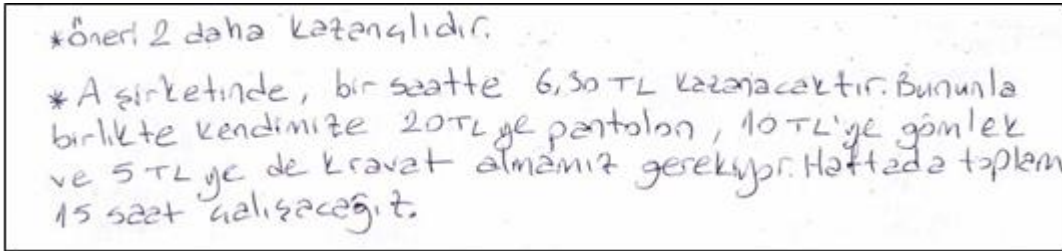 *Öneri 2 daha kazançlıdır.
*A şirketinde, bir saatte 6,30 TL kazanacaktır. Bununla
birlikte kendimize 20TL ye pantolon, 10 TL'ye gömlek
ve 5 TL ye de kravat almamız gerekiyor. Haftada toplam
15 saat çalışacağız.